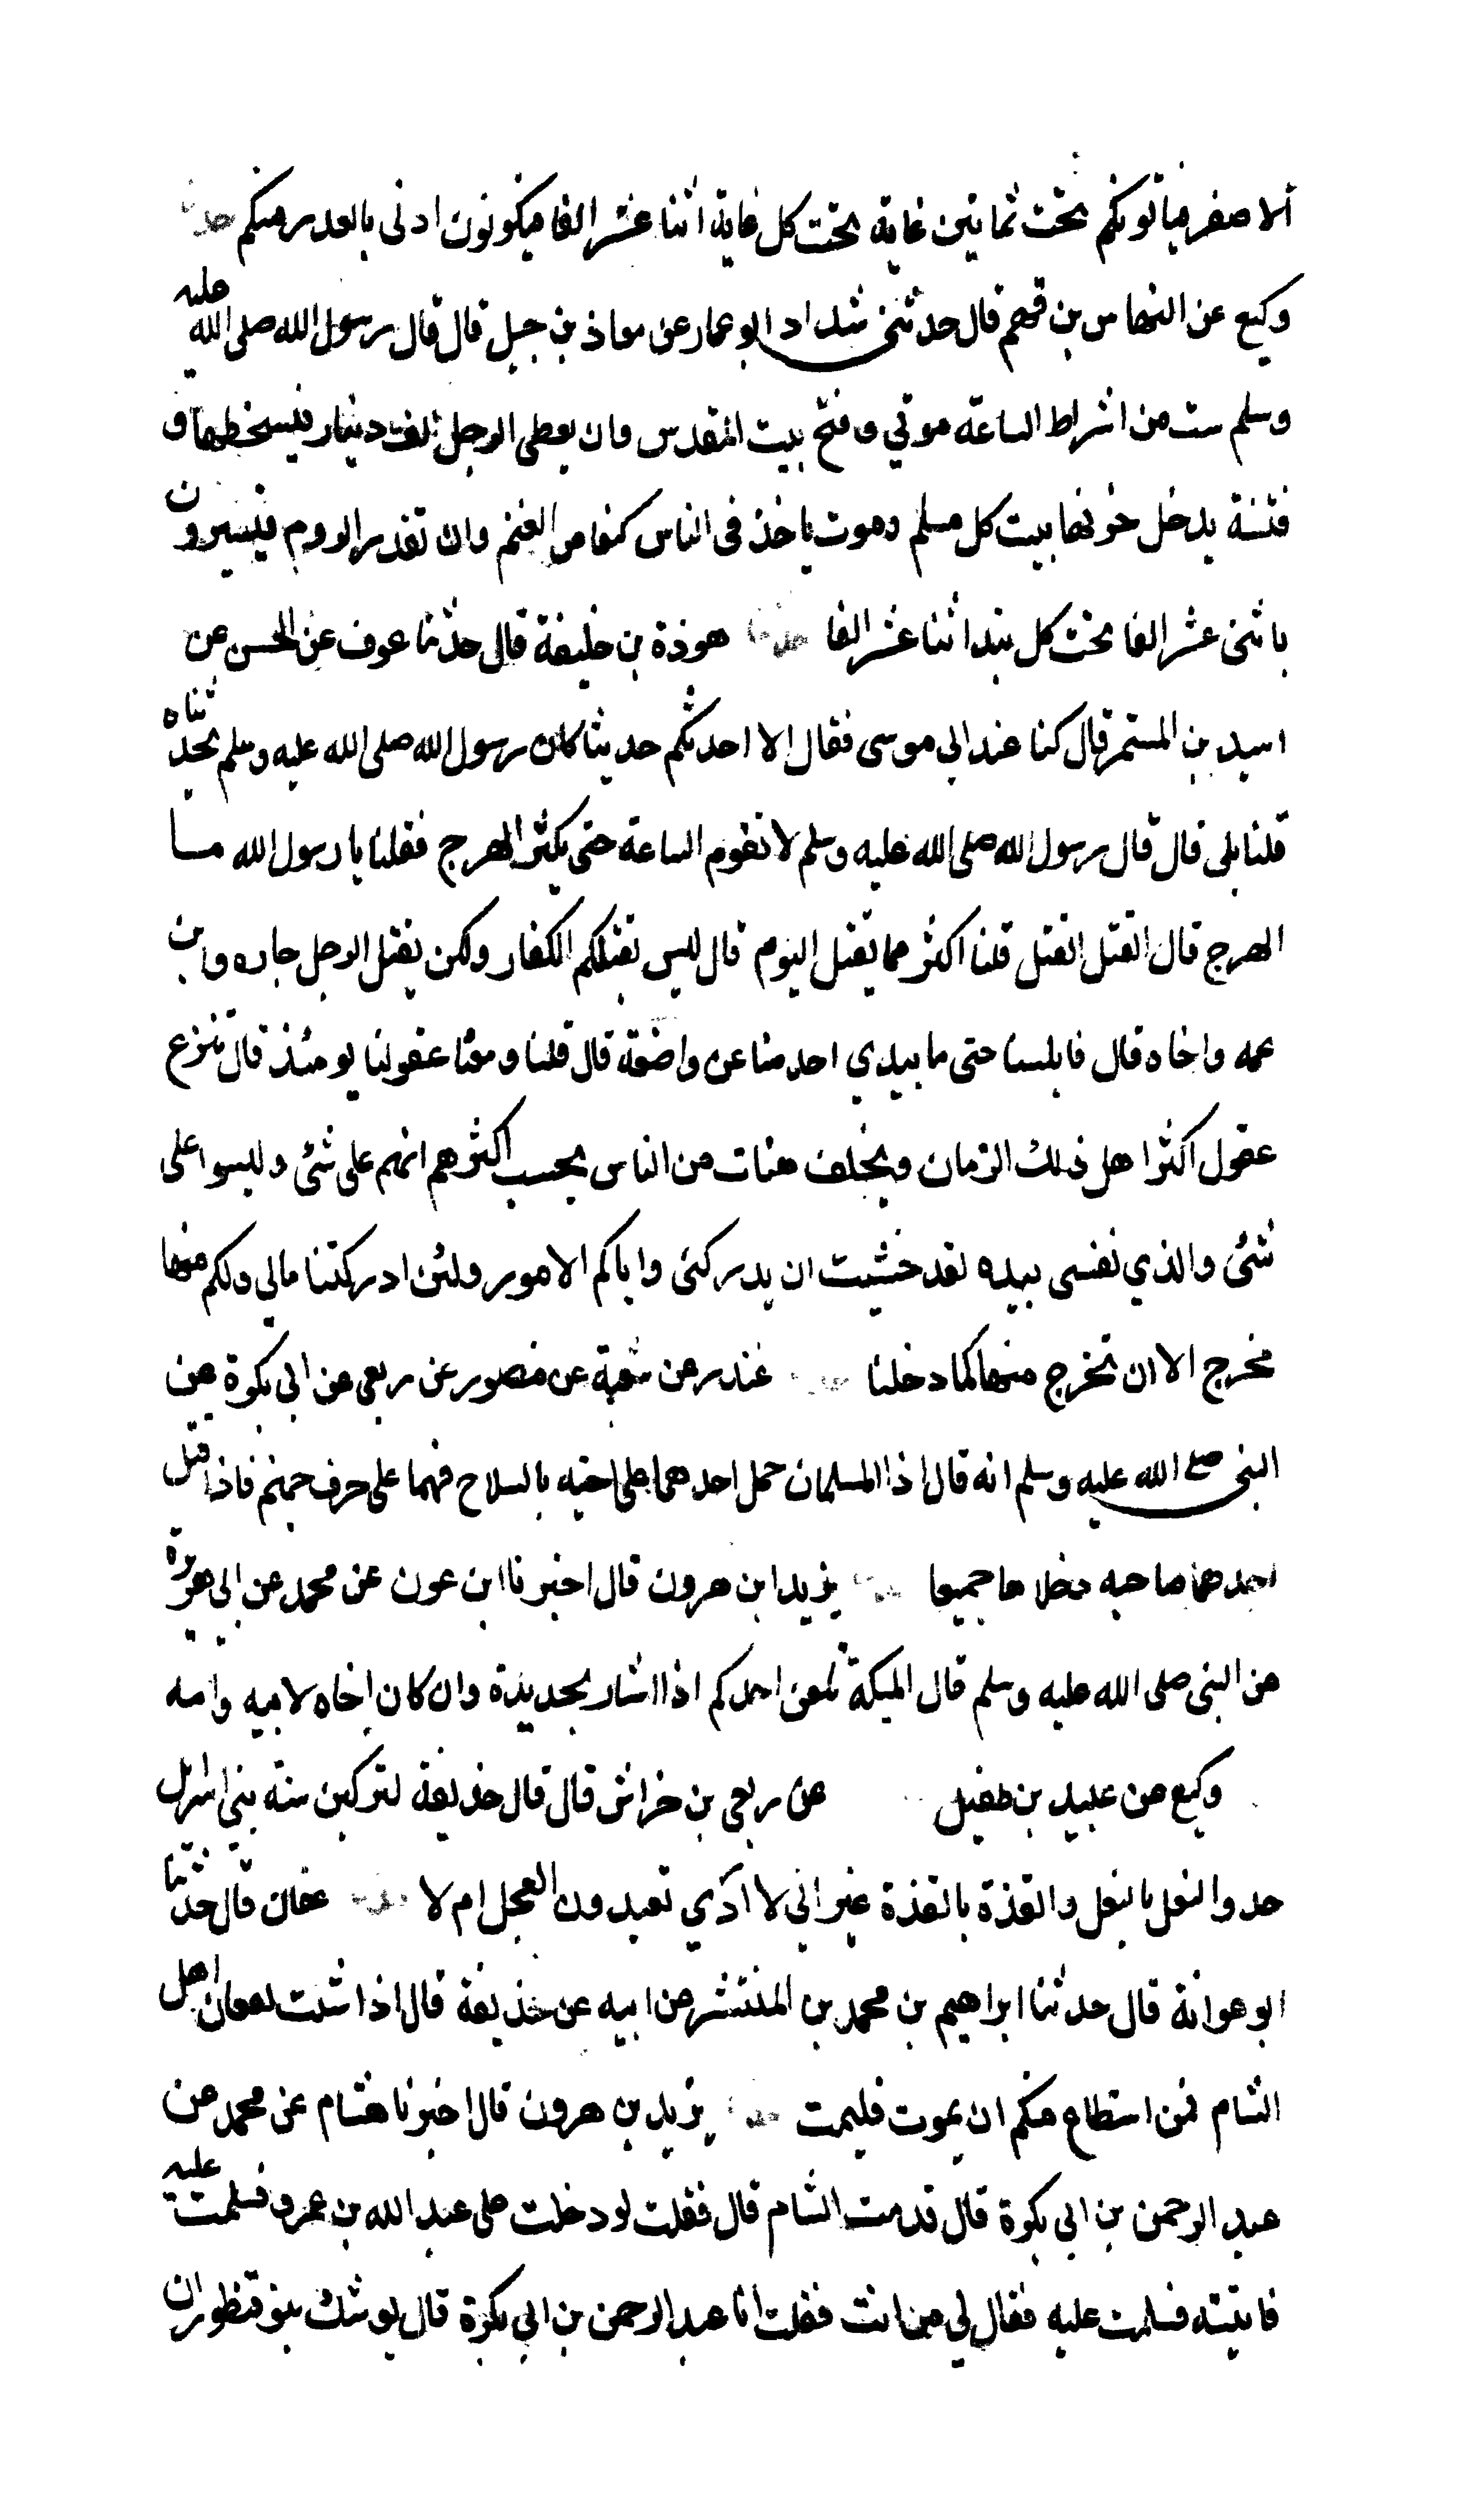 الاصفر فياتونكم تحت ثمانين غاية تحت كل غاية اثنا عشر الفا فيكونون ادنى بالعدر منكم حدثنا
وكيع عن النهاس بن قهم قال حدثني شداد ابو عمار عن معاذ بن جبل قال قال رسول الله صلى الله عليه
وسلم ست من اشراط الساعة موتي وفتح بيت المقدس وان يعطى الرجل الف دينار فيسخطها و
فتنة يدخل حزنها بيت كل مسلم وموت ياخذ فى الناس كقعاص الغنم وان تغدر الروم فيسيرون
باثنى عشر الفا تحت كل بند اثنا عشر الفا حدثنا هوذة بن خليفة قال حدثنا عوف عن الحسن عن
اسيد بن المستمر قال كنا عند ابي موسى فقال الا احدثكم حديثا كان رسول الله صلى الله عليه وسلم يحدثناه
قلنا بلى قال قال رسول الله صلى الله عليه وسلم لا تقوم الساعة حتى يكثر الهرج فقلنا يا رسول الله مـا
الهرج قال القتل القتل قلنا اكثر مما يقتل اليوم قال ليس بقتلكم الكفار ولكن يقتل الرجل جاره وابن
عمه واخاه قال فابلسنا حتى ما يبدي احد منا عن واضحة قال قلنا ومعنا عقولنا يومئذ قال تنزع
عقول اكثر اهل ذلك الزمان ويخلف هنات من الناس يحسب اكثرهم انهم على شئ وليسوا على
شئ والذي نفسى بيده لقد خشيت ان يدركنى واياكم الامور ولئن ادركتنا مالي ولكم منها
مخرج الا ان نخرج منها كما دخلنا حدثنا غندر عن شعبة عن منصور عن ربعى عن ابي بكرة عن
النبى صلع الله عليه وسلم انه قال اذا المسلمان حمل احدهما على اخيه بالسلاح فهما على حرف جهنم فاذا قتل
احدهما صاحبه دخلاها جميعا حدثنا يزيد ابن هرون قال اخبرنا ابن عون عن محمد عن ابي هريرة
عن النبى صلى الله عليه وسلم قال الملئكة تلعن احدكم اذا اشار بحديدة وان كان اخاه لابيه وامه
وكيع عن عبيد بن طفيل عن ربعي بن خراش قال قال حذيفة لتركبن سنة بنى اسرائيل
حدو النعل بالنعل والقذة بالقذة غير انى لا ادري تعبدون العجل ام لا حدثنا عفان قال حدثنا
ابو عوانة قال حدثنا ابراهيم بن محمد بن المنتشر عن ابيه عن حذيفة قال اذا اهل
الشام فمن استطاع منكم ان يموت فليمت حدثنا يزيد بن هرون قال اخبرنا هشام عن محمد عن
عبد الرحمن بن ابى بكرة قال قدمت الشام قال فقلت لو دخلت على عبد الله بن عمرو فسلمت عليه
فاتيته فسلمت عليه فقال لي من انت فقلت انا عبد الرحمن بن ابي بكرة قال يوشك بنو قنطورا ان